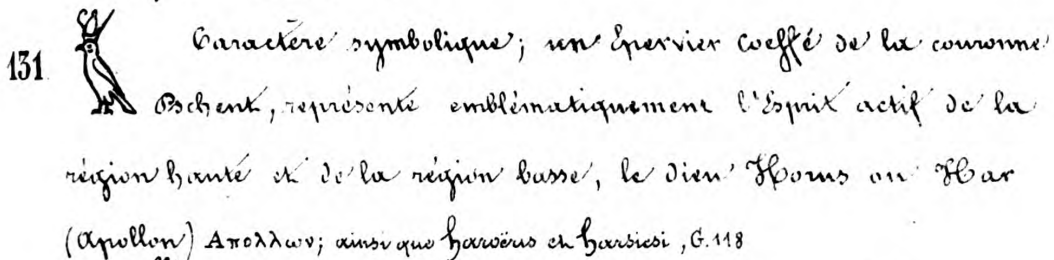 131 Caractère symbolique; un Épervier coeffé de la couronne
Pschent, représente emblématiquement l'Esprit actif de la
région haute et de la région basse, le dieu Horus ou Har
(Apollon) Απολλων; ainsi que haroëris et harsiesi, G. 118